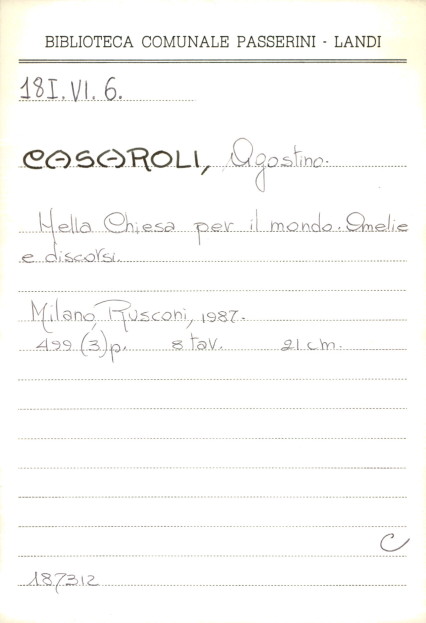 BIBLIOTECA COMUNALE PASSERINI - LANDI
18I.VI.6.
CASAROLI, Agostino.
Nella Chiesa per il mondo. Omelie
e discorsi.
Milano, Rusconi, 1987.
499 (3)p. 8 tav. 21 cm.
C
187312